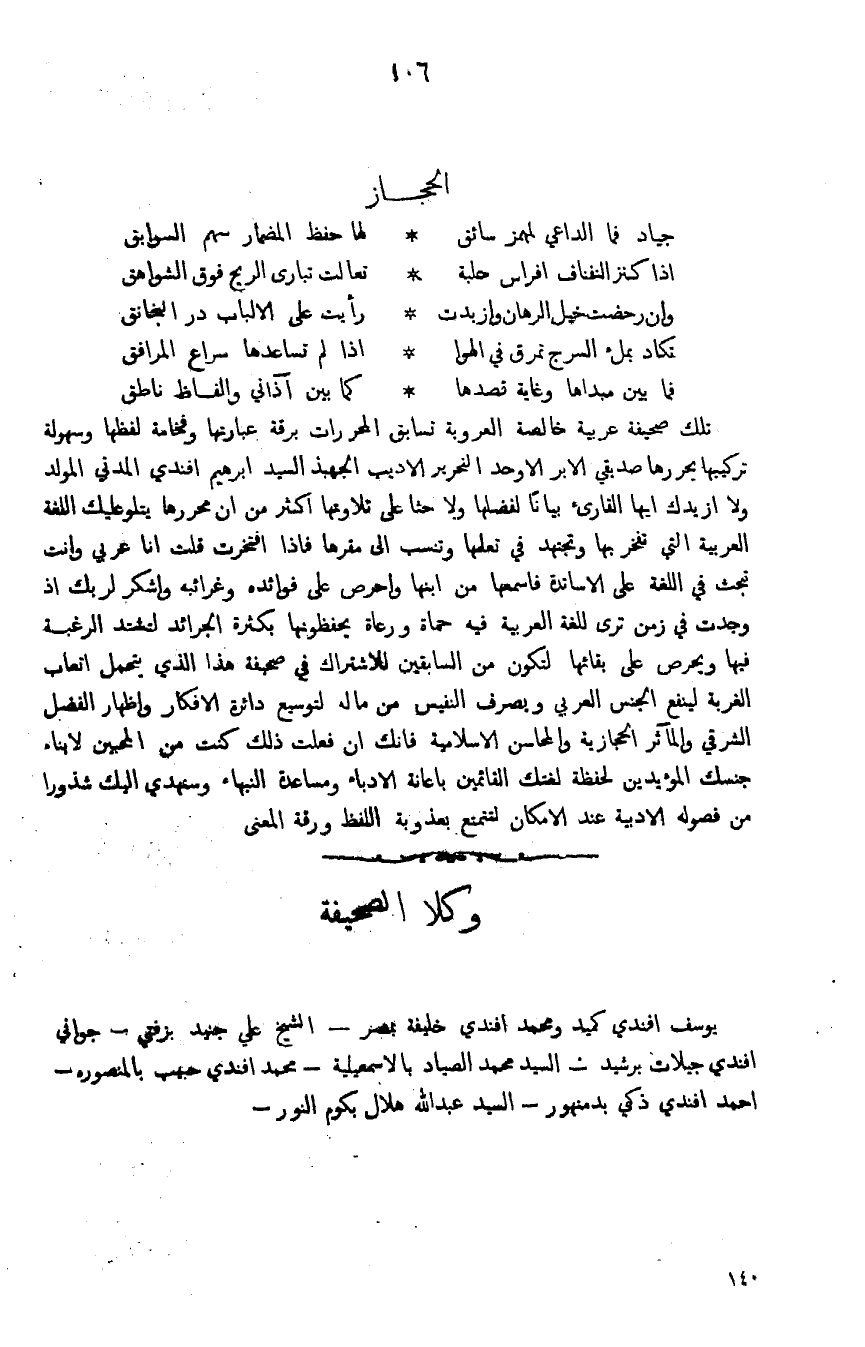 ١٠٦
الحجاز
جياد فما الداعي لمهمز سائق * لها حفظ المضمار سهم السوابق
اذا كنز النفناف افراس حلبة * تعالت تبارى الريح فوق الشواهق
وان رحضت خيل الرهان وازبدت * رأيت على الالباب در البخانق
تكاد بملء السرج تمرق في الهوا * اذا لم تساعدها سراع المرافق
فما بين مبداها وغاية قصدها * كما بين آذاني والفاظ ناطق
تلك صحيفة عربية خالصة العروبة تسابق المحررات برقة عبارتها وفخامة لفظها وسهولة
تركيبها يحررها صديقي الابر الاوحد النحرير الاديب الجهبذ السيد ابرهيم افندي المدني المولد
ولا ازيدك ايها القارىء بيانًا لفضلها ولا حثا على تلاوتها اكثر من ان محررها يتلو عليك اللغة
العربية التي تفخر بها وتجتهد في تعلمها وتنسب الى مقرها فاذا افتخرت قلت انا عربي وانت
تبحث في اللغة على الاساتذة فاسمعها من ابنها واحرص على فوائده وغرائبه واشكر لربك اذ
وجدت في زمن ترى للغة العربية فيه حماة ورعاة يحفظونها بكثرة الجرائد لتشتد الرغبة
فيها ويحرص على بقائها لتكون من السابقين للاشتراك في صحيفة هذا الذي يتحمل اتعاب
الغربة لينفع الجنس العربي ويصرف النفيس من ماله لتوسيع دائرة الافكار واظهار الفضل
الشرقي والمآثر الحجازية والمحاسن الاسلامية فانك ان فعلت ذلك كنت من المحبين لابناء
جنسك المؤيدين لحفظة لغتك القائمين باعانة الادباء ومساعدة النبهاء وسنهدي اليك شذورا
من فصوله الادبية عند الامكان لتتمتع بعذوبة اللفظ ورقة المعنى
وكلا الصحيفة
يوسف افندي كميد ومحمد افندي خليفة بمصر — الشيخ علي جنيد بزفتي — جواني
افندي جيلات برشيد — السيد محمد الصياد بالاسمعيلية — محمد افندي حبهب بالمنصوره —
احمد افندي ذكي بدمنهور — السيد عبدالله هلال بكوم النور —
١٤٠